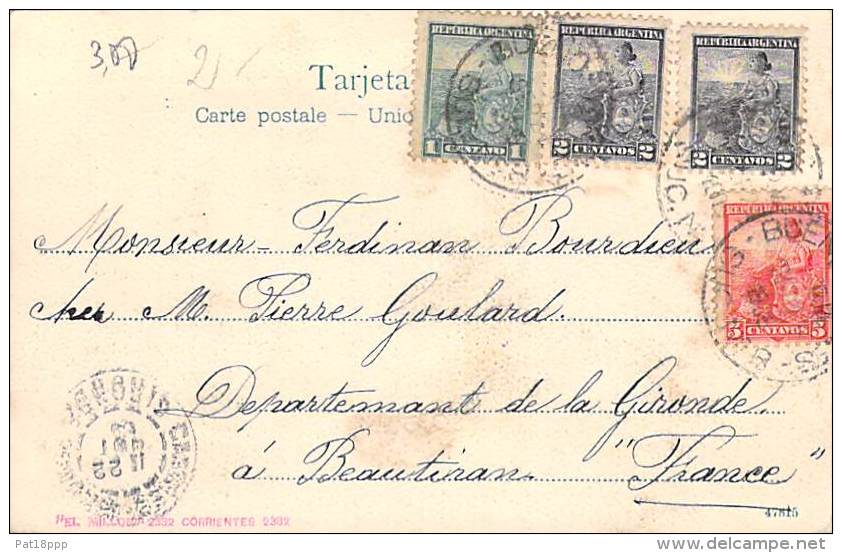 3,00
2
REPUBLICA ARGENTINA
1 CENTAVO 1
REPUBLICA ARGENTINA
2 CENTAVOS 2
REPUBLICA ARGENTINA
2 CENTAVOS 2
Tarjeta
Carte postale — Unio
REPUBLICA ARGENTINA
5 CENTAVOS 5
Monsieur Ferdinan Bourdieu
chez M. Pierre Goulard.
Departemant de la Gironde.
á Beautiran "France"
2332 CORRIENTES 2332
47815
Pat18ppp
delcampe.net